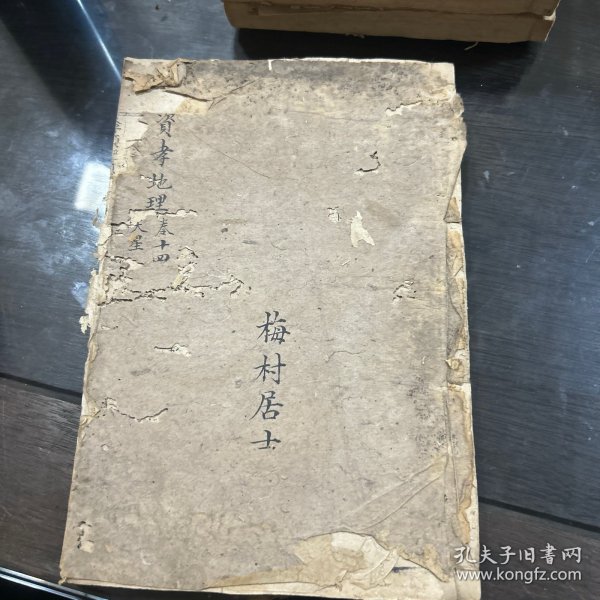 資孝地理卷十四
天星
梅村居士
孔夫子旧書网
www.kongfz.com